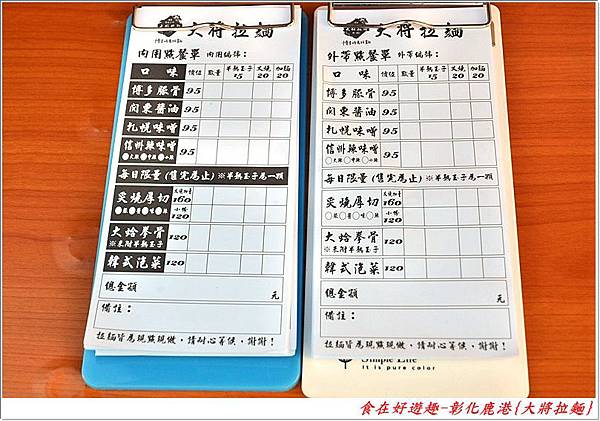 大將拉麵
內用點餐單 內用編號：
口味 價位 數量 半熟玉子15 叉燒20 加麵20
博多豚骨 95
関東醬油 95
札幌味噌 95
信州辣味噌 95
○大辣○中辣○小辣
每日限量(售完為止)※半熟玉子為一顆
炙燒厚切 160
小惰 120
大蛤拳骨 120
※未附半熟玉子
韓式泡菜 120
總金額 元
備註：
拉麵皆為現點現做，請耐心等候，謝謝！
大將拉麵
外帶點餐單 外帶編號：
口味 價位 數量 半熟玉子15 叉燒20 加麵20
博多豚骨 95
関東醬油 95
札幌味噌 95
信州辣味噌 95
○大辣○中辣○小辣
每日限量(售完為止)※半熟玉子為一顆
炙燒厚切 160
120
大蛤拳骨 120
※未附半熟玉子
韓式泡菜 120
總金額 元
備註：
拉麵皆為現點現做，請耐心等候，謝謝！
Simple Life
it is pure color
食在好遊趣-彰化鹿港{大將拉麵}